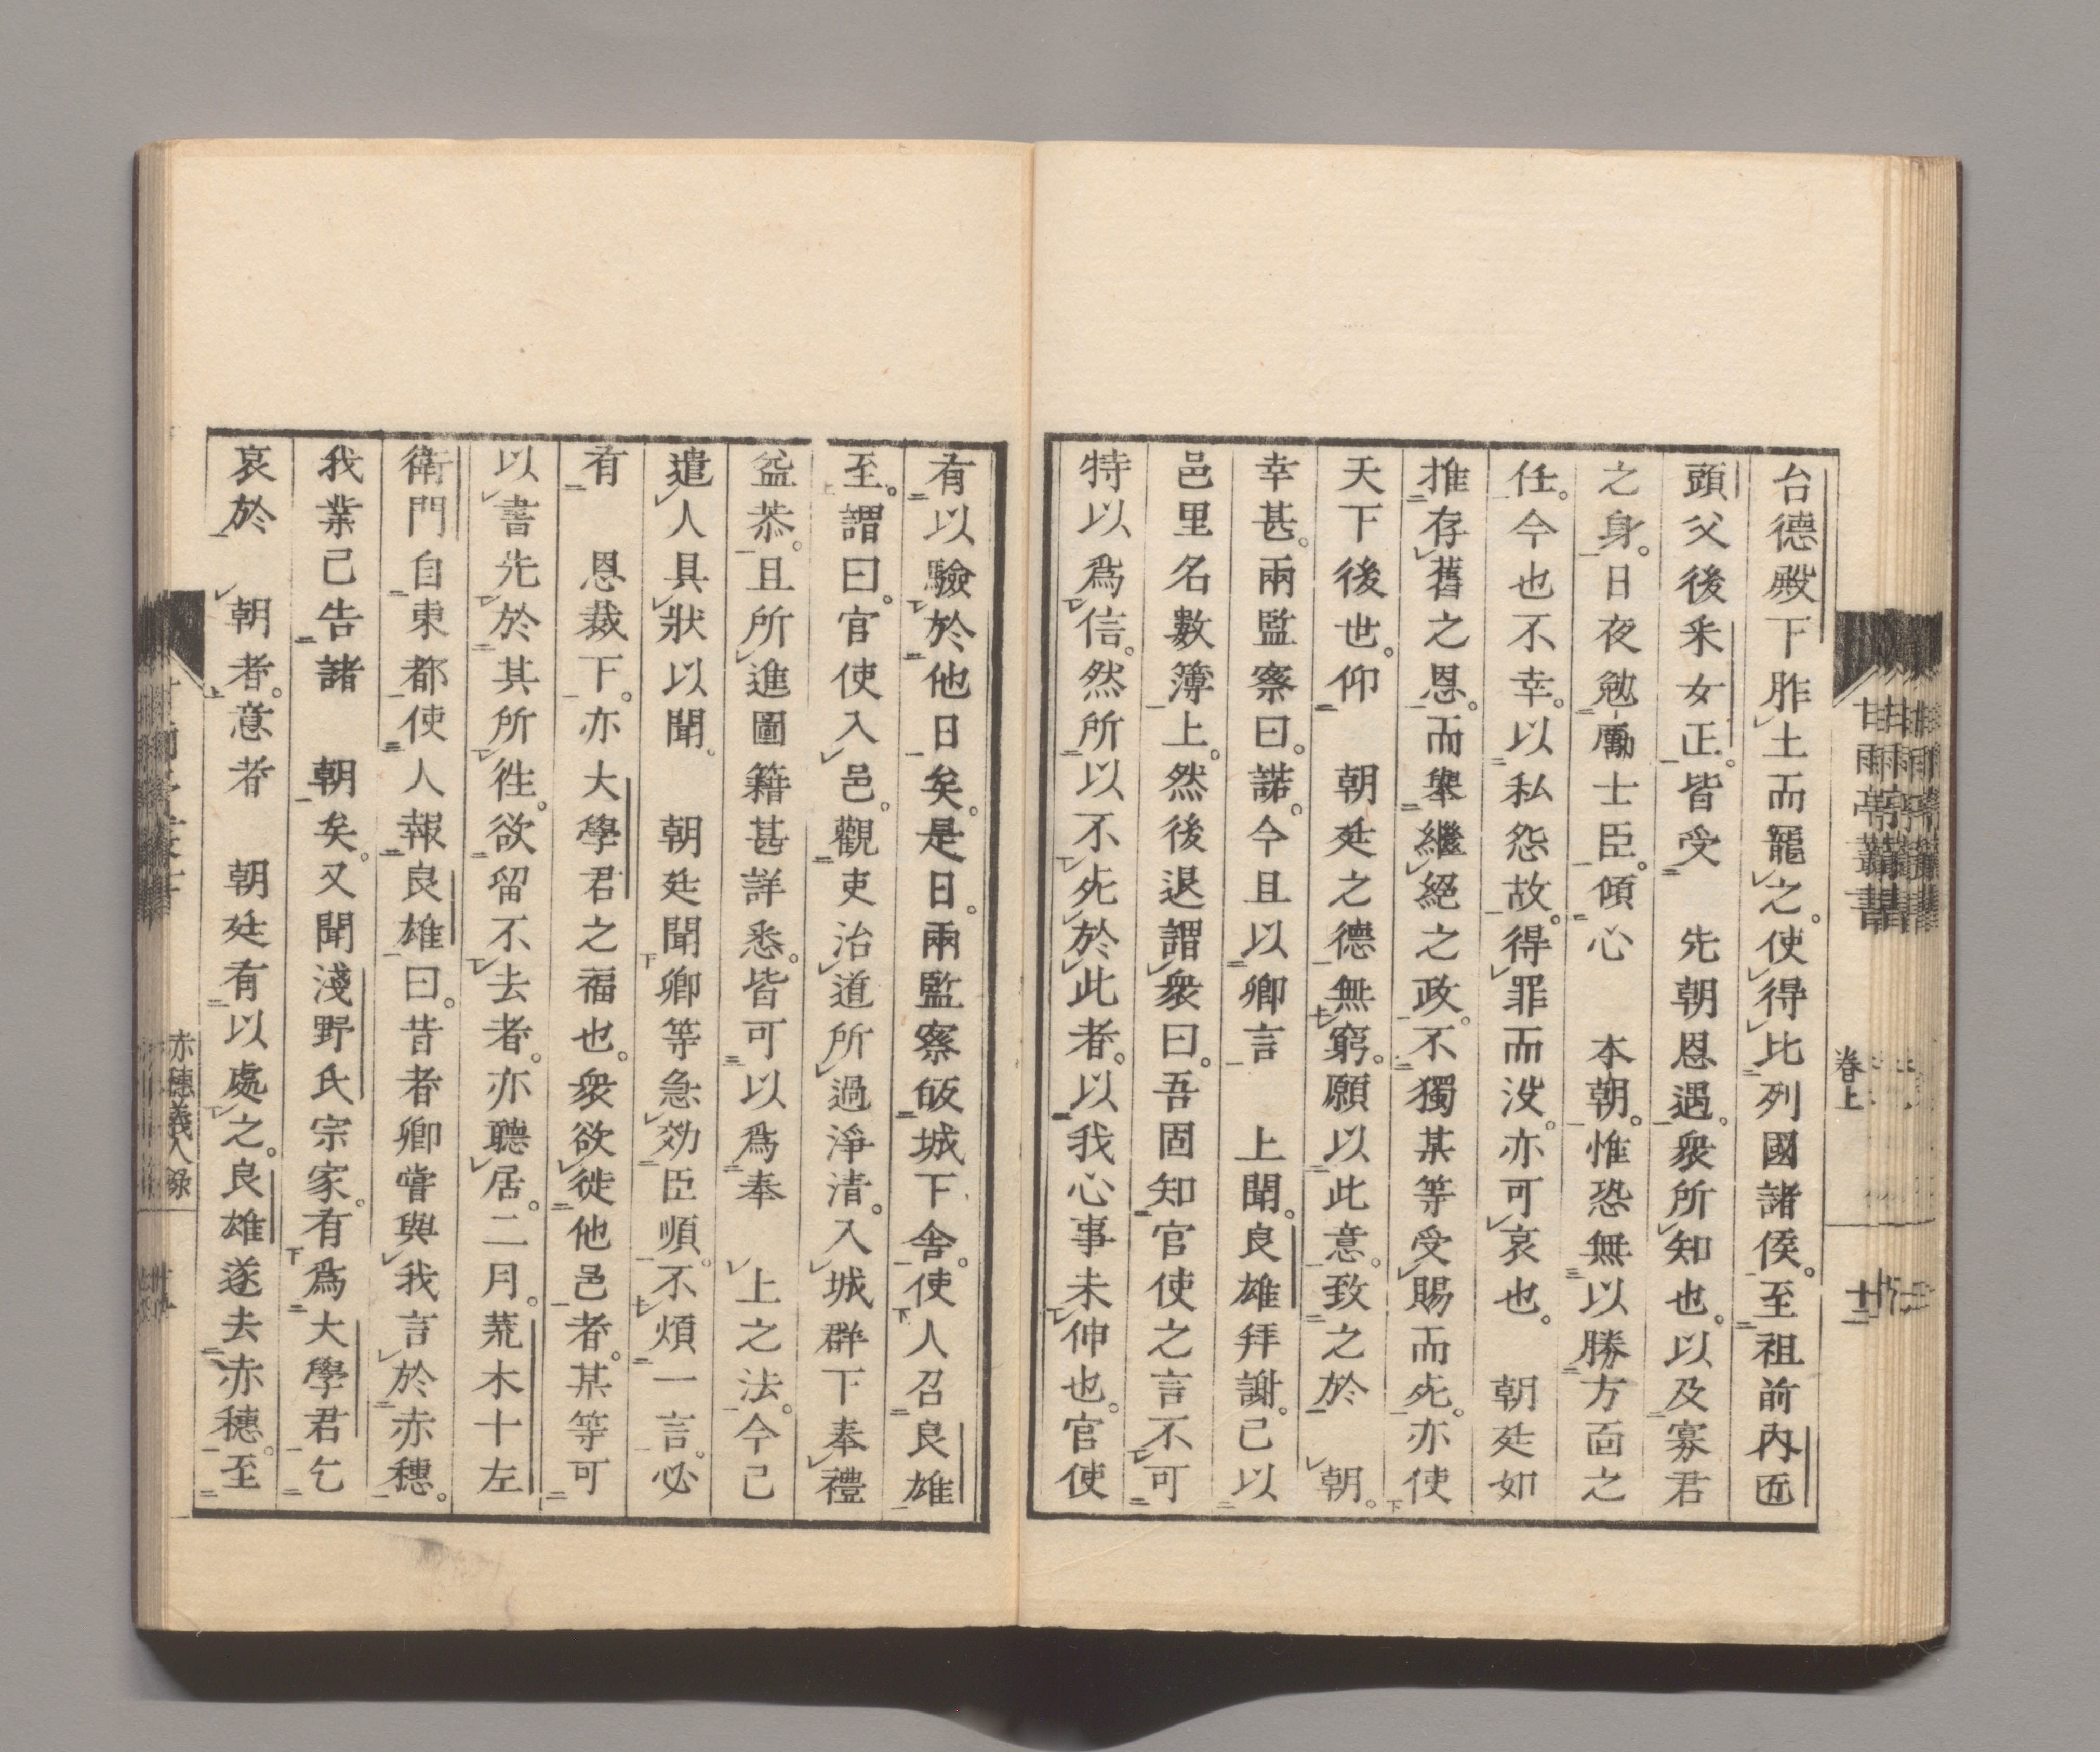 台德殿下胙土而寵之。使得比列國諸侯。至祖前內匠
頭父後釆女正。皆受　先朝恩遇。衆所知也。以及寡君
之身。日夜勉勵士臣。傾心　本朝。惟恐無以勝方面之
任。今也不幸。以私怨故。得罪而沒。亦可哀也。　朝廷如
推存舊之恩。而舉繼絕之政。不獨某等受賜而死。亦使
天下後世。仰　朝廷之德無窮。願以此意。致之於　朝。
幸甚。兩監察曰。諾。今且以卿言　上聞。良雄拜謝。已以
邑里名數簿上。然後退謂衆曰。吾固知官使之言不可
特以爲信。然所以不死於此者。以我心事未伸也。官使
甘雨亭叢書
卷上
十二
有以驗於他日矣。是日。兩監察皈城下舍。使人召良雄
至。謂曰。官使入邑。觀吏治道所過淨清。入城群下奉禮
益恭。且所進圖籍甚詳悉。皆可以爲奉　上之法。今已
遣人具狀以聞。　朝廷聞卿等急効臣順。不煩一言。必
有　恩裁下。亦大學君之福也。衆欲徙他邑者。某等可
以書先於其所往。欲留不去者。亦聽居。二月。荒木十左
衛門自東都使人報良雄曰。昔者卿嘗與我言於赤穗。
我業已告諸　朝矣。又聞淺野氏宗家。有爲大學君乞
哀於　朝者。意者　朝廷有以處之。良雄遂去赤穗。至
赤穗義人錄